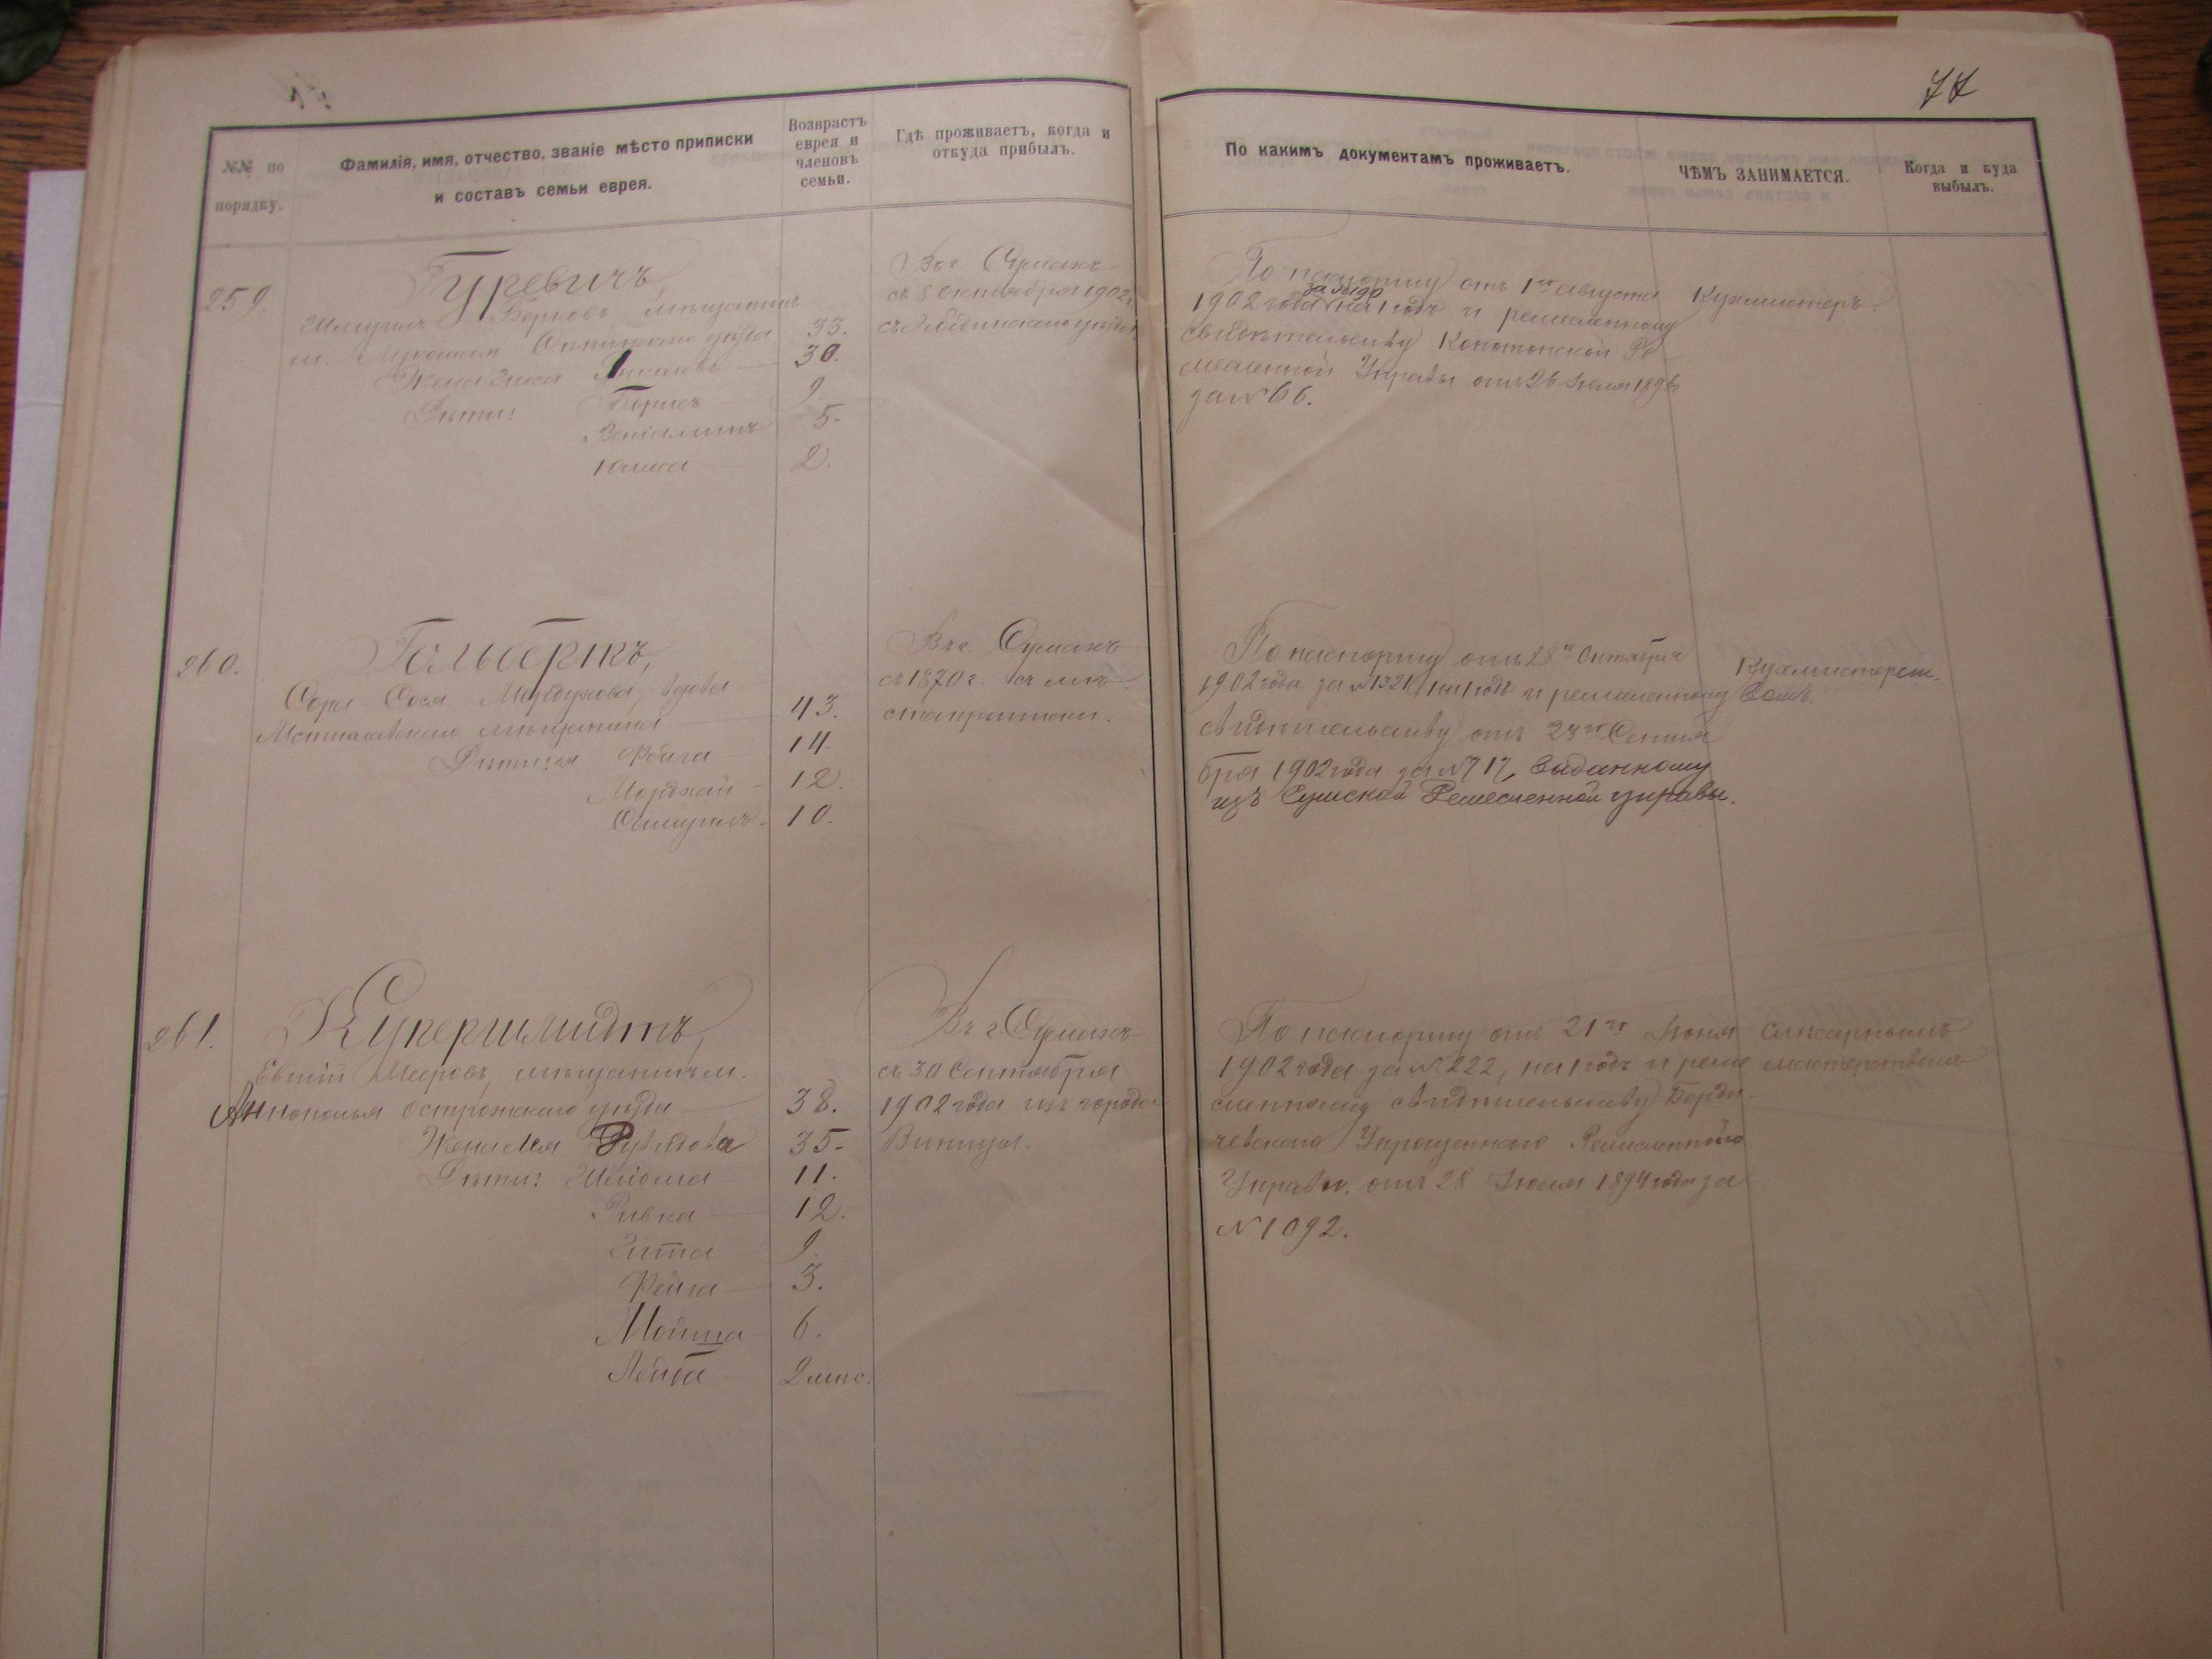 77
№№ по порядку.
Фамилія, имя, отчество, званіе мѣсто приписки
и составъ семьи еврея.
Возврастъ
еврея и
членовъ
семьи.
Гдѣ проживаетъ, когда и
откуда прибылъ.
По какимъ документамъ проживаетъ.
ЧѢМЪ ЗАНИМАЕТСЯ.
Когда и куда
выбылъ.
259.
Гуревичъ,
Шмуилъ Берковъ мѣщанинъ
м. уѣзда 33.
Жена 30.
Дѣти: Борисъ 9.
Веніаминъ 5.
2.
Въ г. Сумахъ
съ 8 октября 1902 г.
съ Лебединскаго уѣзда
По паспорту отъ 1го августа
1902 года за № на 1 годъ и ремесленному
свидѣтельству Конотопской Ре
месленной Управы отъ 26 Іюля 1896
за № 66.
Кухмистеръ.
260.
Гальберкъ,
Сора Сося Мордухова, вдова 43.
Мстиславскаго мѣщанина
Дѣти: Фейга 14.
Мордхай 12.
Самуилъ 10.
Въ г. Сумахъ
съ 1870 г. съ мѣ
ста приписки.
По паспорту отъ 28го Октября
1902 года за № 1321 на 1 годъ и ремесленному
свидѣтельству отъ 23го Сентя
бря 1902 года за № 717, выданному
изъ Сумской Ремесленной управы.
Кухмистерст.
вомъ.
261.
Купершмидтъ,
Евшій Мееровъ, мѣщанинъ м.
Аннополья Острожскаго уѣзда 38.
Жена Лея Рувидова 35.
Дѣти: Шліома 11.
Ривка 12.
Зита 9.
Фейга 3.
Мойша 6.
Лейба 2 мѣс.
Въ г. Сумахъ
съ 30 Сентября
1902 года изъ города
Винницы.
По паспорту отъ 21го Іюня
1902 года за № 222, на 1 годъ и реме
сленному свидѣтельству Берди
чевскаго Упрощеннаго Ремесленного
Управы. отъ 28 Іюля 1894 года за
№ 1092.
слесарнымъ
мастерствомъ